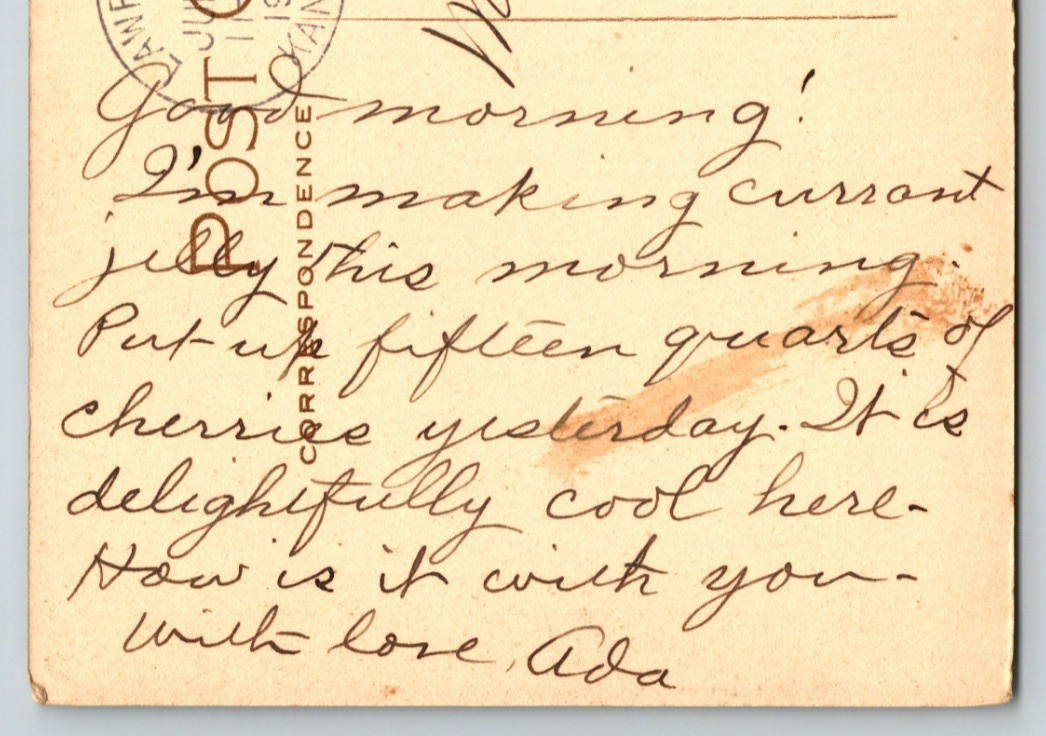 Good morning!
I'm making currant
jelly this morning.
Put up fifteen quarts of
cherries yesterday. It is
delightfully cool here-
How is it with you-
With love, Ada
POST
CORRESPONDENCE